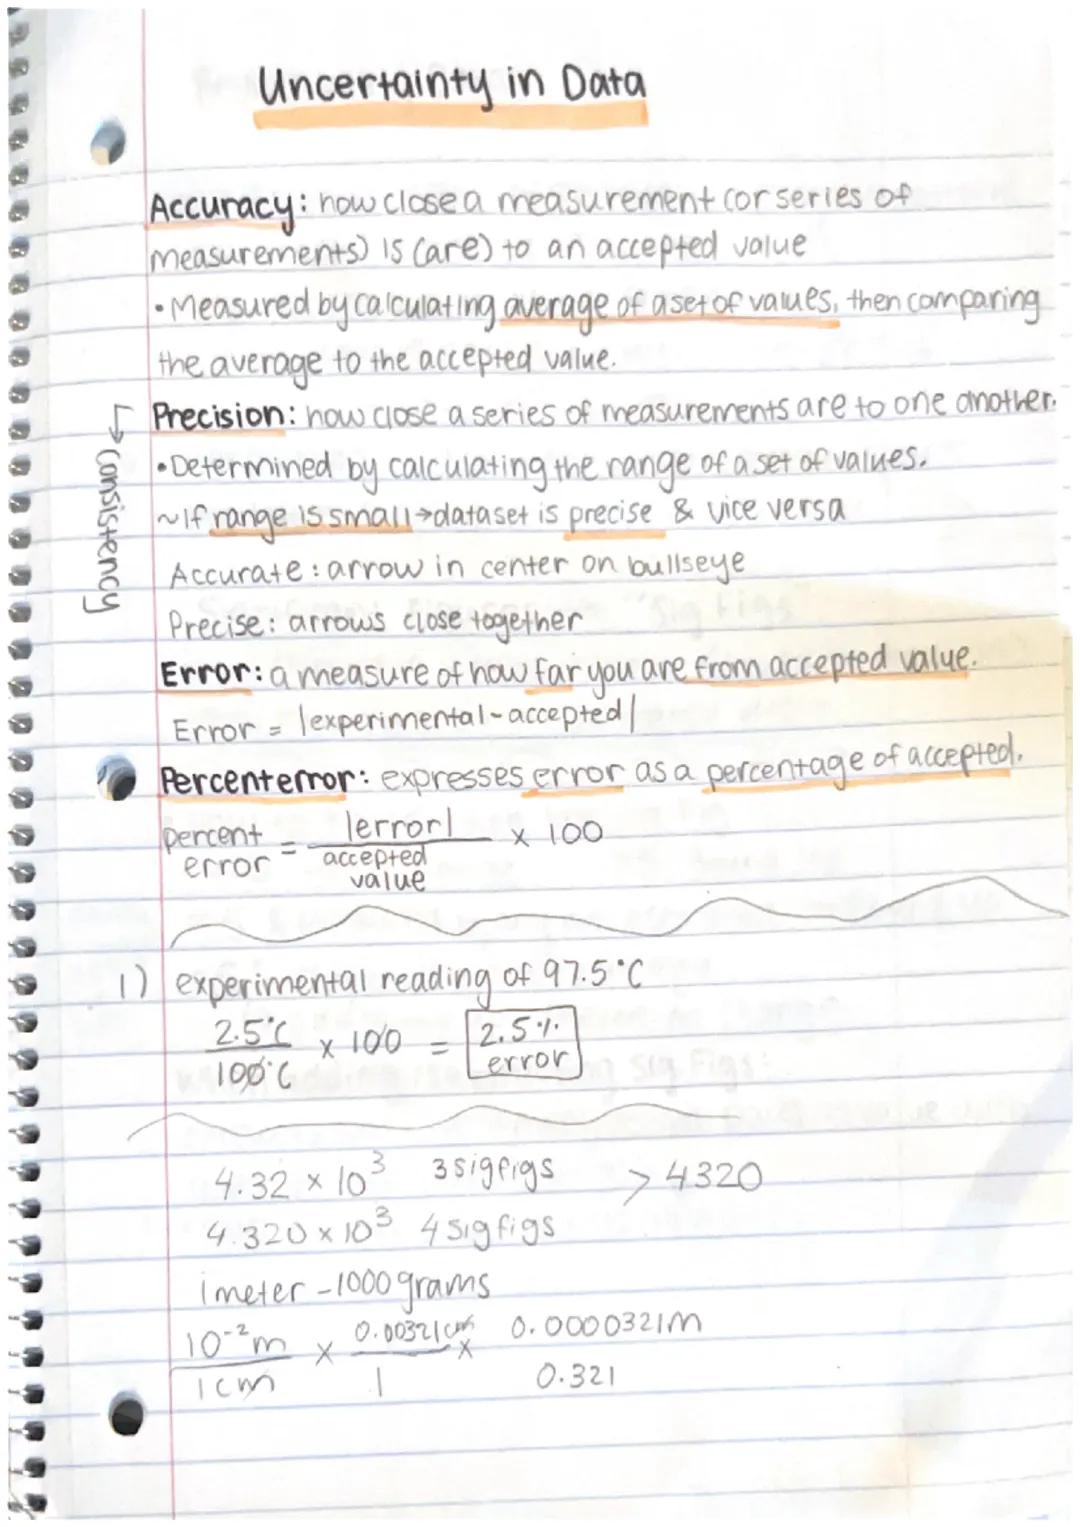 Uncertainty in Data
Accuracy: how close a measurement (or series of
measurements) is (are) to an accepted value
• Measured by calculating average of a set of values, then comparing
the average to the accepted value.
Precision: how close a series of measurements are to one another.
→ Consistency
• Determined by calculating the range of a set of values.
~ If range is small → dataset is precise & vice versa
Accurate: arrow in center on bullseye
Precise: arrows close together
Error: a measure of how far you are from accepted value.
Error = |experimental - accepted|
Percent error: expresses error as a percentage of accepted.
percent error = |error| / accepted value x 100
1) experimental reading of 97.5°C
2.5°C / 100°C x 100 = 2.5% error
4.32 x 10³ 3 sig figs > 4320
4.320 x 10³ 4 sig figs
1 meter - 1000 grams
10⁻²m / 1cm x 0.00321cm / 1 x 0.0000321m
0.321